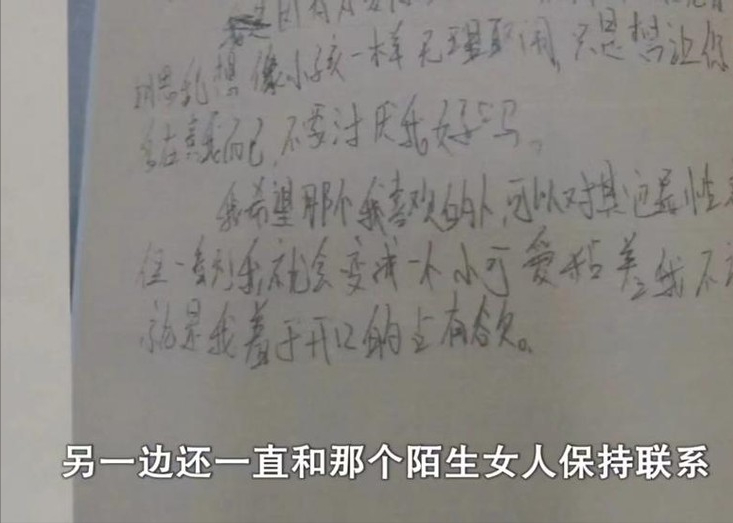 胡思乱想像小孩一样无理取闹,只是想让你
在意我而已,不要讨厌我好吗。
我希望那个我喜欢的人,可以对其他异性
但一到我就会变成一个小可爱粘着我不
就是我羞于开口的占有欲。
另一边还一直和那个陌生女人保持联系